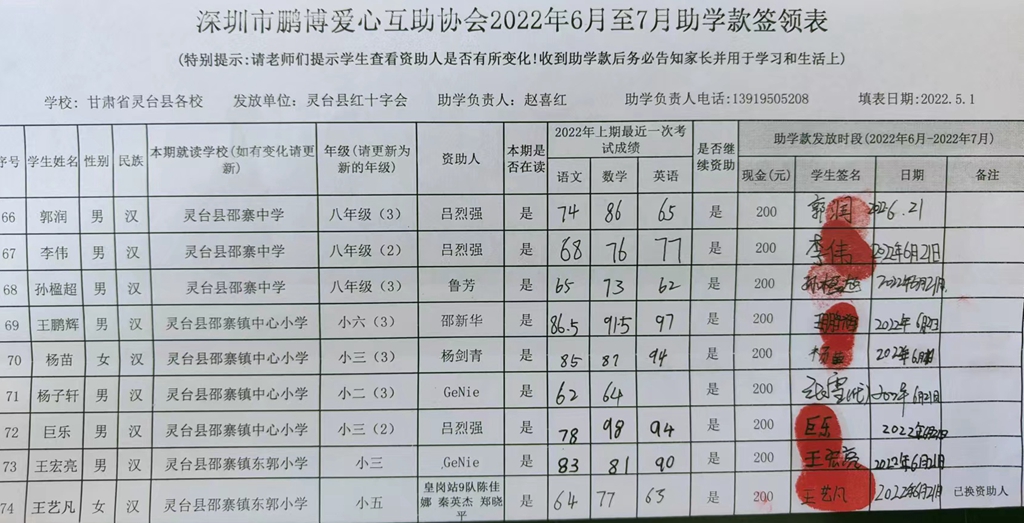 深圳市鹏博爱心互助协会2022年6月至7月助学款签领表
(特别提示:请老师们提示学生查看资助人是否有所变化!收到助学款后务必告知家长并用于学习和生活上)
学校: 甘肃省灵台县各校 发放单位: 灵台县红十字会 助学负责人: 赵喜红 助学负责人电话:13919505208 填表日期:2022.5.1
序号 学生姓名 性别 民族 本期就读学校(如有变化请更新) 年级(请更新为新的年级) 资助人 本期是否在读 2022年上期最近一次考试成绩 是否继续资助 助学款发放时段(2022年6月-2022年7月)
语文 数学 英语 现金(元) 学生签名 日期 备注
66 郭润 男 汉 灵台县邵寨中学 八年级(3) 吕烈强 是 74 86 65 是 200 郭润 2022.6.21
67 李伟 男 汉 灵台县邵寨中学 八年级(2) 吕烈强 是 68 76 77 是 200 李伟 2022年6月21日
68 孙楹超 男 汉 灵台县邵寨中学 八年级(3) 鲁芳 是 65 73 62 是 200 孙楹超 2022年6月21日
69 王鹏辉 男 汉 灵台县邵寨镇中心小学 小六(3) 邵新华 是 86.5 91.5 97 是 200 王鹏辉 2022年6月
70 杨苗 女 汉 灵台县邵寨镇中心小学 小三(3) 杨剑青 是 85 81 94 是 200 杨苗 2022年6月
71 杨子轩 男 汉 灵台县邵寨镇中心小学 小二(3) GeNie 是 62 64 是 200 (代) 2022年6月21日
72 巨乐 男 汉 灵台县邵寨镇中心小学 小三(2) 吕烈强 是 78 98 94 是 200 巨乐 2022年6月21日
73 王宏亮 男 汉 灵台县邵寨镇东郭小学 小三 GeNie 是 83 81 90 是 200 王宏亮 2022年6月21日
74 王艺凡 女 汉 灵台县邵寨镇东郭小学 小五 皇岗站9队陈佳娜 秦英杰 郑晓平 是 64 77 63 是 200 王艺凡 2022年6月21日 已换资助人